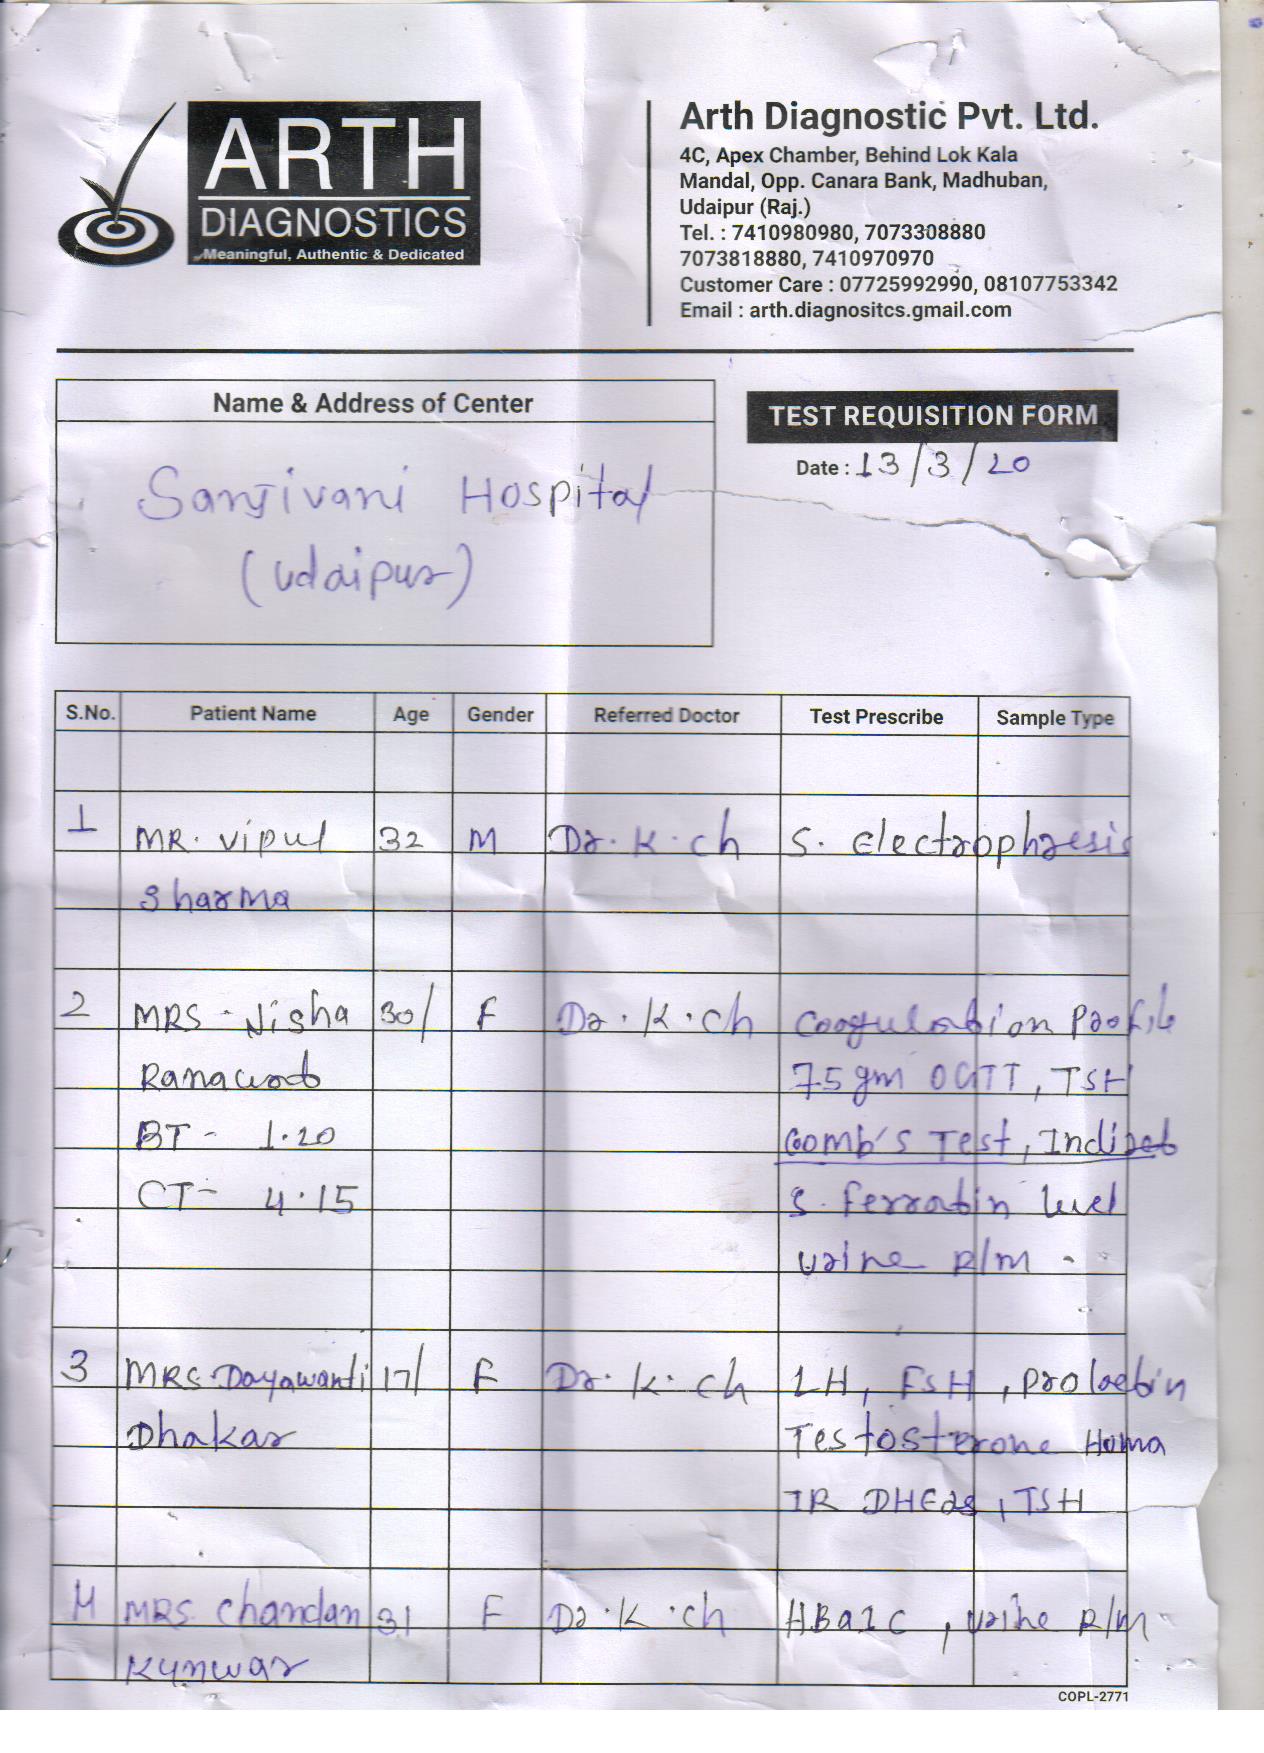 ARTH
DIAGNOSTICS
Meaningful, Authentic & Dedicated
Arth Diagnostic Pvt. Ltd.
4C, Apex Chamber, Behind Lok Kala
Mandal, Opp. Canara Bank, Madhuban,
Udaipur (Raj.)
Tel. : 7410980980, 7073308880
7073818880, 7410970970
Customer Care : 07725992990, 08107753342
Email : arth.diagnositcs.gmail.com
Name & Address of Center
Sanjivani Hospital
(Udaipur)
TEST REQUISITION FORM
Date : 13/3/20
S.No. Patient Name Age Gender Referred Doctor Test Prescribe Sample Type
1 MR. Vipul 32 M Dr. K. ch S. Electrophresis
Sharma
2 MRS - Nisha 30/ F Dr. K. ch Coagulation Profile
Ranawat 75 gm OGTT, TSH
BT - 1.20 Comb's Test, Indirect
CT - 4.15 S. Ferratin level
Urine R/M -
3 MRS. Dayawanti 17/ F Dr. K. ch LH, FSH, Prolactin
Dhakar Testosterone Homa
IR DHEAs, TSH
4 MRS. Chandan 31 F Dr. K. ch HBA1C, Urine R/M
Kunwar
COPL-2771